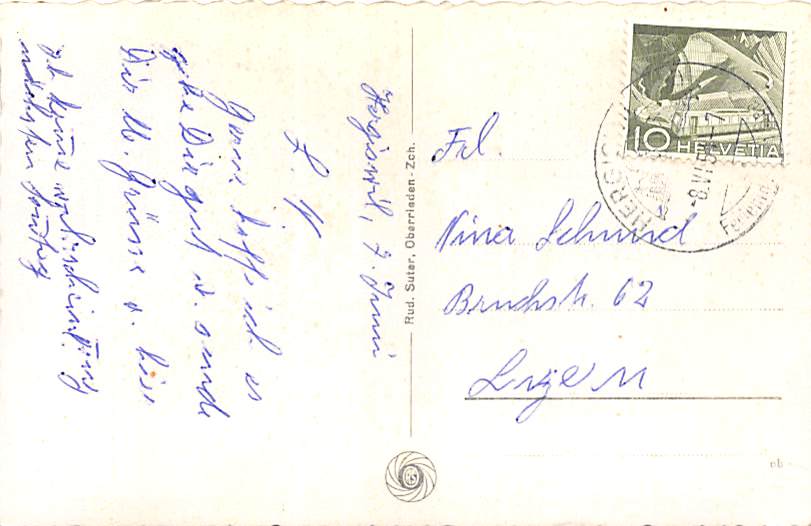 Hergiswil, 7. Juni
L. N.
Gerne hoffe ich es
gehe Dir gut u. sende
Dir lb. Grüsse v. hier
Ich komme wahrscheinlich
nächsten Sonntag
Rud. Suter, Oberrieden-Zch.
Frl.
Nina Schmid
Bruchstr. 62
Luzern
10 HELVETIA
HERGIS
-8.VI.5
-7
RS
nb